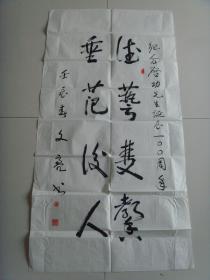 纪念启功先生诞辰一〇〇周年
德艺双馨
垂范后人
壬辰春文亮书